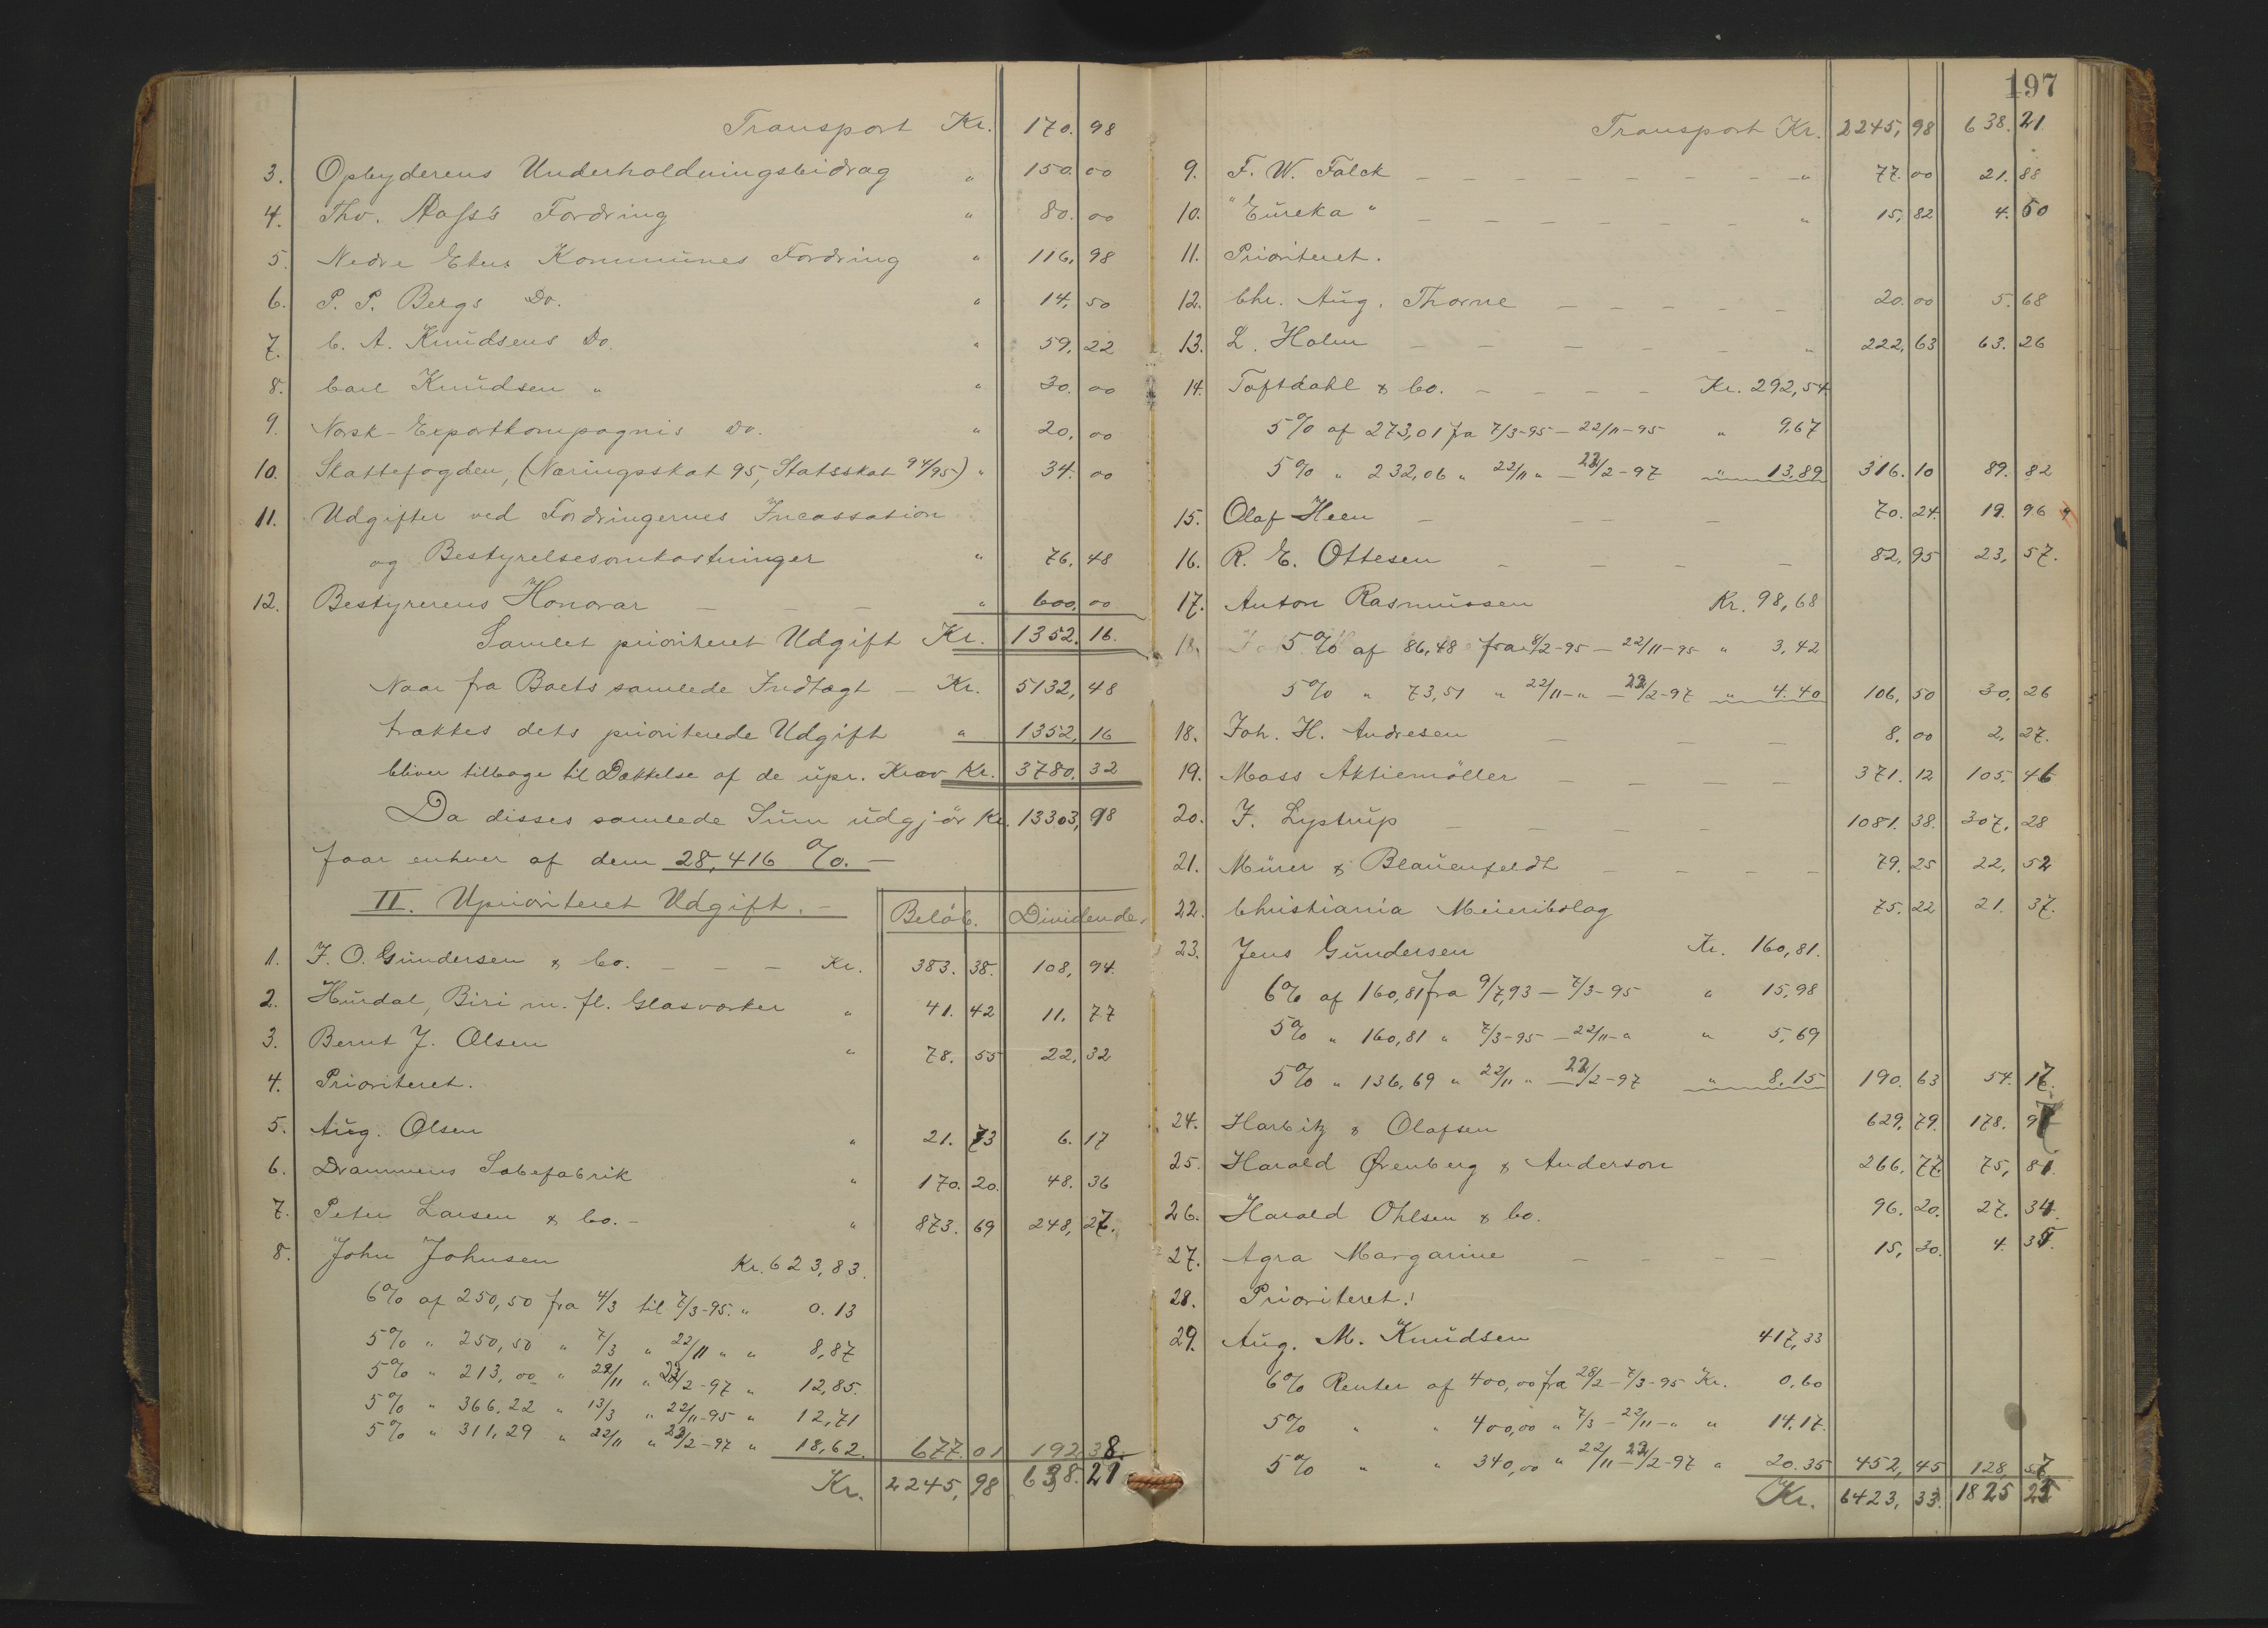 Transport Kr. 170. 98
3. Opbyderens Underholdningsbidrag " 150. 00
4. Tho. Aass's Fordring " 80. 00
5. Nedre Ekers Kommunes Fordring " 116, 98
6. P. P. Bergs Do. " 14, 50
7. C. A. Knudsens Do. " 59, 22
8. Carl Knudsen " " 30. 00
9. Norsk-Exportkompagnis Do. " 20, 00
10. Skattefogden, (Næringsskat 95, Statsskat 94/95) " 34. 00
11. Udgifter ved Fordringernes Incassation
og Bestyrelsesomkostninger " 76, 48
12. Bestyrerens Honorar — — — " 600, 00
Samlet prioriteret Udgift Kr. 1352. 16.
Naar fra Boets samlede Indtægt — Kr. 5132, 48
trækkes dets prioriterede Udgift " 1352, 16
bliver tilbage til Dækkelse af de upr. Krav Kr. 3780. 32
Da disses samlede Sum udgjør Kr. 13303, 98
faar enhver af dem 28,416 %. —
II. Uprioriteret Udgift. —
Beløb. Dividende.
1. J. O. Gundersen & Co. — — — Kr. 383. 38. 108, 94.
2. Hurdal, Biri m. fl. Glasværker " 41. 42 11. 77
3. Bernt J. Olsen " 78. 55 22, 32
4. Prioriteret.
5. Aug. Olsen " 21. 73 6. 17
6. Drammens Sæbefabrik " 170. 20. 48. 36
7. Peter Larsen & Co. — " 873. 69 248, 27.
8. John Johnsen Kr. 623,83.
6% af 250,50 fra 4/3 til 7/3-95. " 0. 13
5% " 250,50 " 7/3 " 22/11 " " 8,87
5% " 213,00 " 22/11 " 22/2-97 " 12,85.
5% " 366.22 " 13/3 " 22/11-95 " 12,71
5% " 311,29 " 22/11 " 22/2-97 " 18,62. 677. 01 192 38.
Kr. 2245, 98 638. 21
197
Transport Kr. 2245, 98 638. 21
9. F. W. Falck — — — — " 77. 00 21. 88
10. "Eureka" — — — — " 15, 82 4. 50
11. Prioriteret.
12. Chr. Aug. Thorne — — — — 20. 00 5. 68
13. L. Holm — — — — " 222, 63 63. 26
14. Toftdahl & Co. — — — — Kr. 292,54.
5% af 273,01 fra 7/3-95 — 22/11-95 " 9,67
5% " 232,06 " 22/11 " — 22/2-97 " 13,89 316. 10 89. 82
15. Olaf Heen — — — — 70. 24. 19. 96
16. R. E. Ottesen — — — — 82, 95 23, 57.
17. Anton Rasmussen Kr. 98,68
18. 5% af 86,48 fra 8/2-95 — 22/11-95 " 3,42
5% " 73,51 " 22/11-" — 22/2-97 " 4.40 106, 50 30, 26
18. Joh. H. Andresen — — — 8, 00 2, 27.
19. Moss Aktiemøller — — — — 371. 12 105. 46
20. J. Lystrup — — — — 1081. 38. 307, 28
21. Mürer & Blauenfeldt — — — — 79. 25 22, 52
22. Christiania Meieribolag 75. 22 21. 37.
23. Jens Gundersen Kr. 160,81.
6% af 160,81 fra 9/7,93 — 7/3-95 " 15,98
5% " 160,81 " 7/3-95 — 22/11-" " 5,69
5% " 136,69 " 22/11 " — 22/2-97 " 8,15 190. 63 54. 17.
24. Harbitz & Olafsen 629. 79. 178. 97
25. Harald Ørenberg & Anderson 266. 77. 75, 81.
26. Harald Ohlsen & Co. 96. 20. 27. 34.
27. Agra Margarine — — — — 15, 30. 4. 35.
28. Prioriteret.
29. Aug. M. Knudsen 417,33
6% Renter af 400,00 fra 28/2 — 7/3-95 Kr. 0.60
5% " " 400,00 " 7/3 — 22/11-" " 14.17.
5% " " 340,00 " 22/11 — 22/2-97 " 20.35 452, 45 128, 57
Kr. 6423, 33. 1825 23